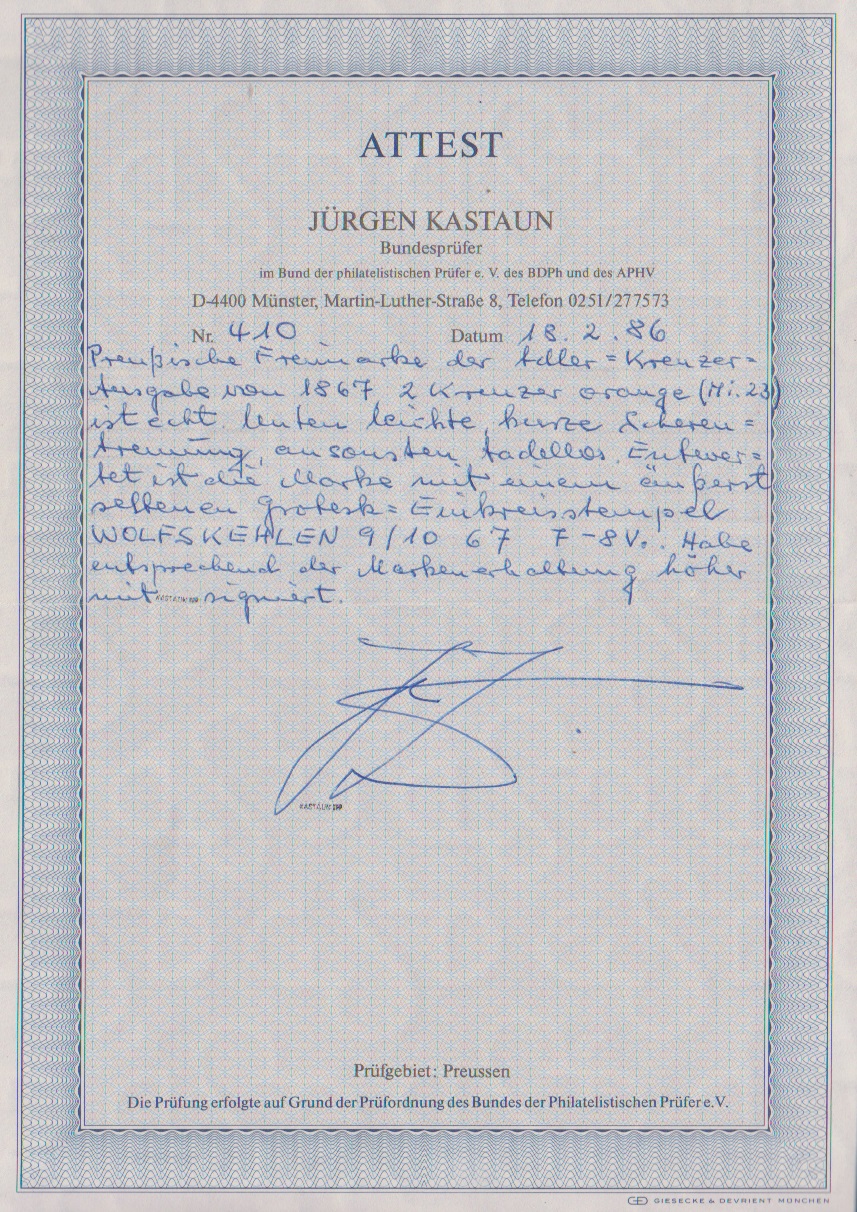 ATTEST
JÜRGEN KASTAUN
Bundesprüfer
im Bund der philatelistischen Prüfer e. V. des BDPh und des APHV
D-4400 Münster, Martin-Luther-Straße 8, Telefon 0251/277573
Nr. 410 Datum 18. 2. 86
Preußische Freimarke der Adler=Kreuzer=
Ausgabe von 1867, 2 Kreuzer orange (Mi. 23)
ist echt. Unten leichte, kurze Scheren=
trennung, ansonsten tadellos. Entwer=
tet ist die Marke mit einem äußerst
seltenen Grotesk=Einkreisstempel
WOLFSKEHLEN 9/10 67 7-8V.. Habe
entsprechend der Markenerhaltung höher
mit KASTAUN BPP signiert.
KASTAUN BPP
Prüfgebiet: Preussen
Die Prüfung erfolgte auf Grund der Prüfordnung des Bundes der Philatelistischen Prüfer e.V.
GIESECKE & DEVRIENT MÜNCHEN